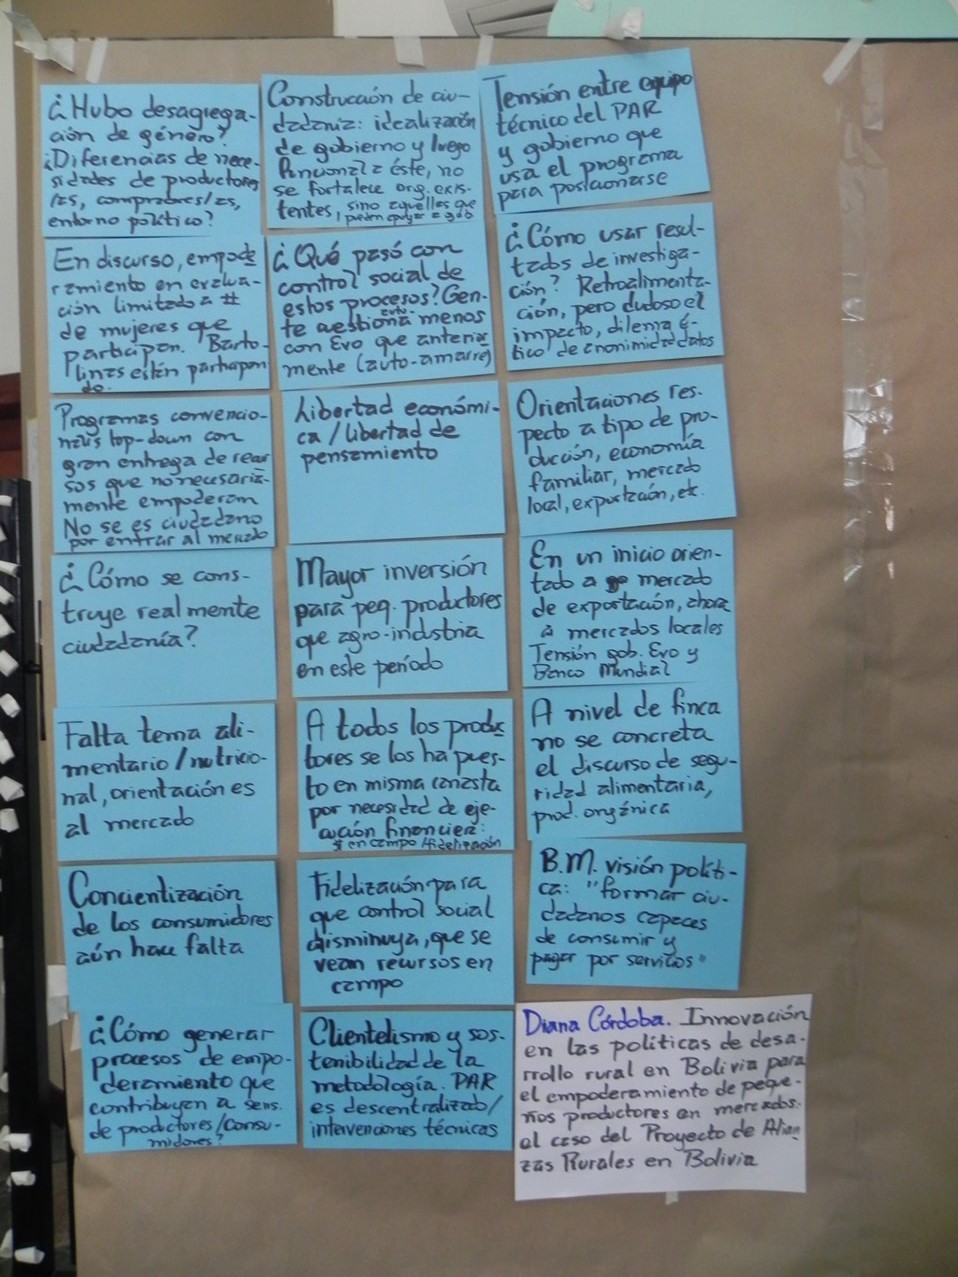 ¿Hubo desagrega-
ción de género?
¿Diferencias de nece-
sidades de productores
/as, compradores/as,
entorno político?
En discurso, empode
ramiento en evalua-
ción limitado a #
de mujeres que
participan. Barto-
linas están participan
do.
Programas convencio-
nales top-down con
gran entrega de recur
sos que no necesaria-
mente empoderan
No se es ciudadano
por entrar al mercado
¿Cómo se cons-
truye realmente
ciudadanía?
Falta tema ali-
mentario/nutricio-
nal, orientación es
al mercado
Concientización
de los consumidores
aún hace falta
¿Cómo generar
procesos de empo-
deramiento que
contribuyen a sens.
de productores/consu-
midores?
Construcción de ciu-
dadanía: idealización
de gobierno y luego
funcional a éste, no
se fortalece org. exis-
tentes, sino aquellas que
pueden apoyar a gob
¿Qué pasó con
control social de
estos procesos? Gen-
te auto-
cuestiona menos
con Evo que anterior
mente (auto-amarre)
Libertad económi-
ca/libertad de
pensamiento
Mayor inversión
para peq. productores
que agro-industria
en este período
A todos los produc
tores se los ha pues-
to en misma canasta
por necesidad de eje-
cución financiera:
en campo/fidelización
Fidelización para
que control social
disminuya, que se
vean recursos en
campo
Clientelismo y sos-
tenibilidad de la
metodología. PAR
es descentralizado/
intervenciones técnicas
Tensión entre equipo
técnico del PAR
y gobierno que
usa el programa
para posicionarse
¿Cómo usar resul-
tados de investiga-
ción? Retroalimenta-
ción, pero dudoso el
impacto, dilema é-
tico de anonimidad datos
Orientaciones res-
pecto a tipo de pro-
ducción, economía
familiar, mercado
local, exportación, etc.
En un inicio orien-
tado a mercado
de exportación, ahora
a mercados locales
Tensión gob. Evo y
Banco Mundial
A nivel de finca
no se concreta
el discurso de segu-
ridad alimentaria,
prod. orgánica
B.M. visión políti-
ca: "formar ciu-
dadanos capaces
de consumir y
pagar por servicios"
Diana Córdoba. Innovación
en las políticas de desa-
rrollo rural en Bolivia para
el empoderamiento de peque-
ños productores en mercados.
el caso del Proyecto de Alian
zas Rurales en Bolivia